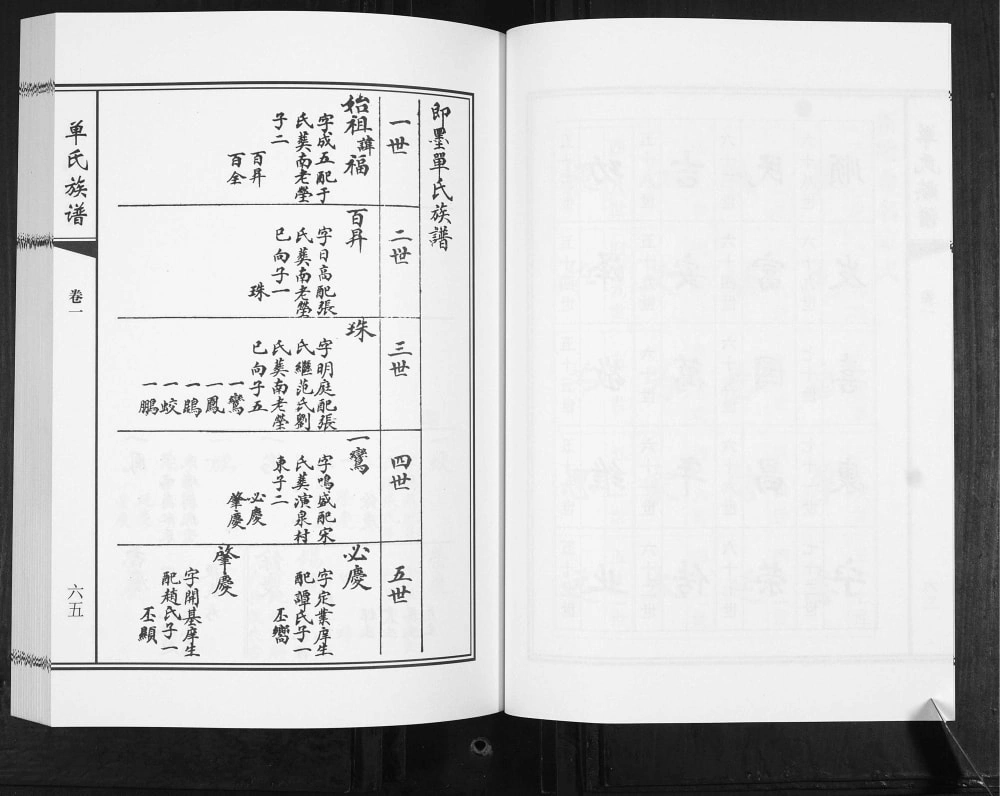 即墨單氏族譜
一世
始祖諱福
字成五配于
氏葬南老塋
子二
百昇
百全
二世
百昇
字日高配張
氏葬南老塋
巳向子一
珠
三世
珠
字明庭配張
氏繼范氏劉
氏葬南老塋
巳向子五
一鸞
一鳳
一鵾
一蛟
一鵬
四世
一鸞
字鳴盛配宋
氏葬演泉村
東子二
必慶
肇慶
五世
必慶
字定業庠生
配譚氏子一
丕嚮
肇慶
字開基庠生
配趙氏子一
丕顯
单氏族谱
卷一
六五